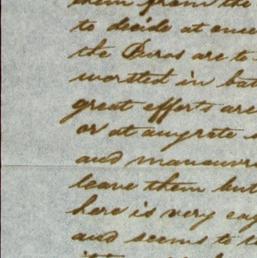 them from the
to decide at once
the Buros are to
worsted in bat
great efforts are
or at anyrate
and manouvr
leave them but
here is very eag
and seems to